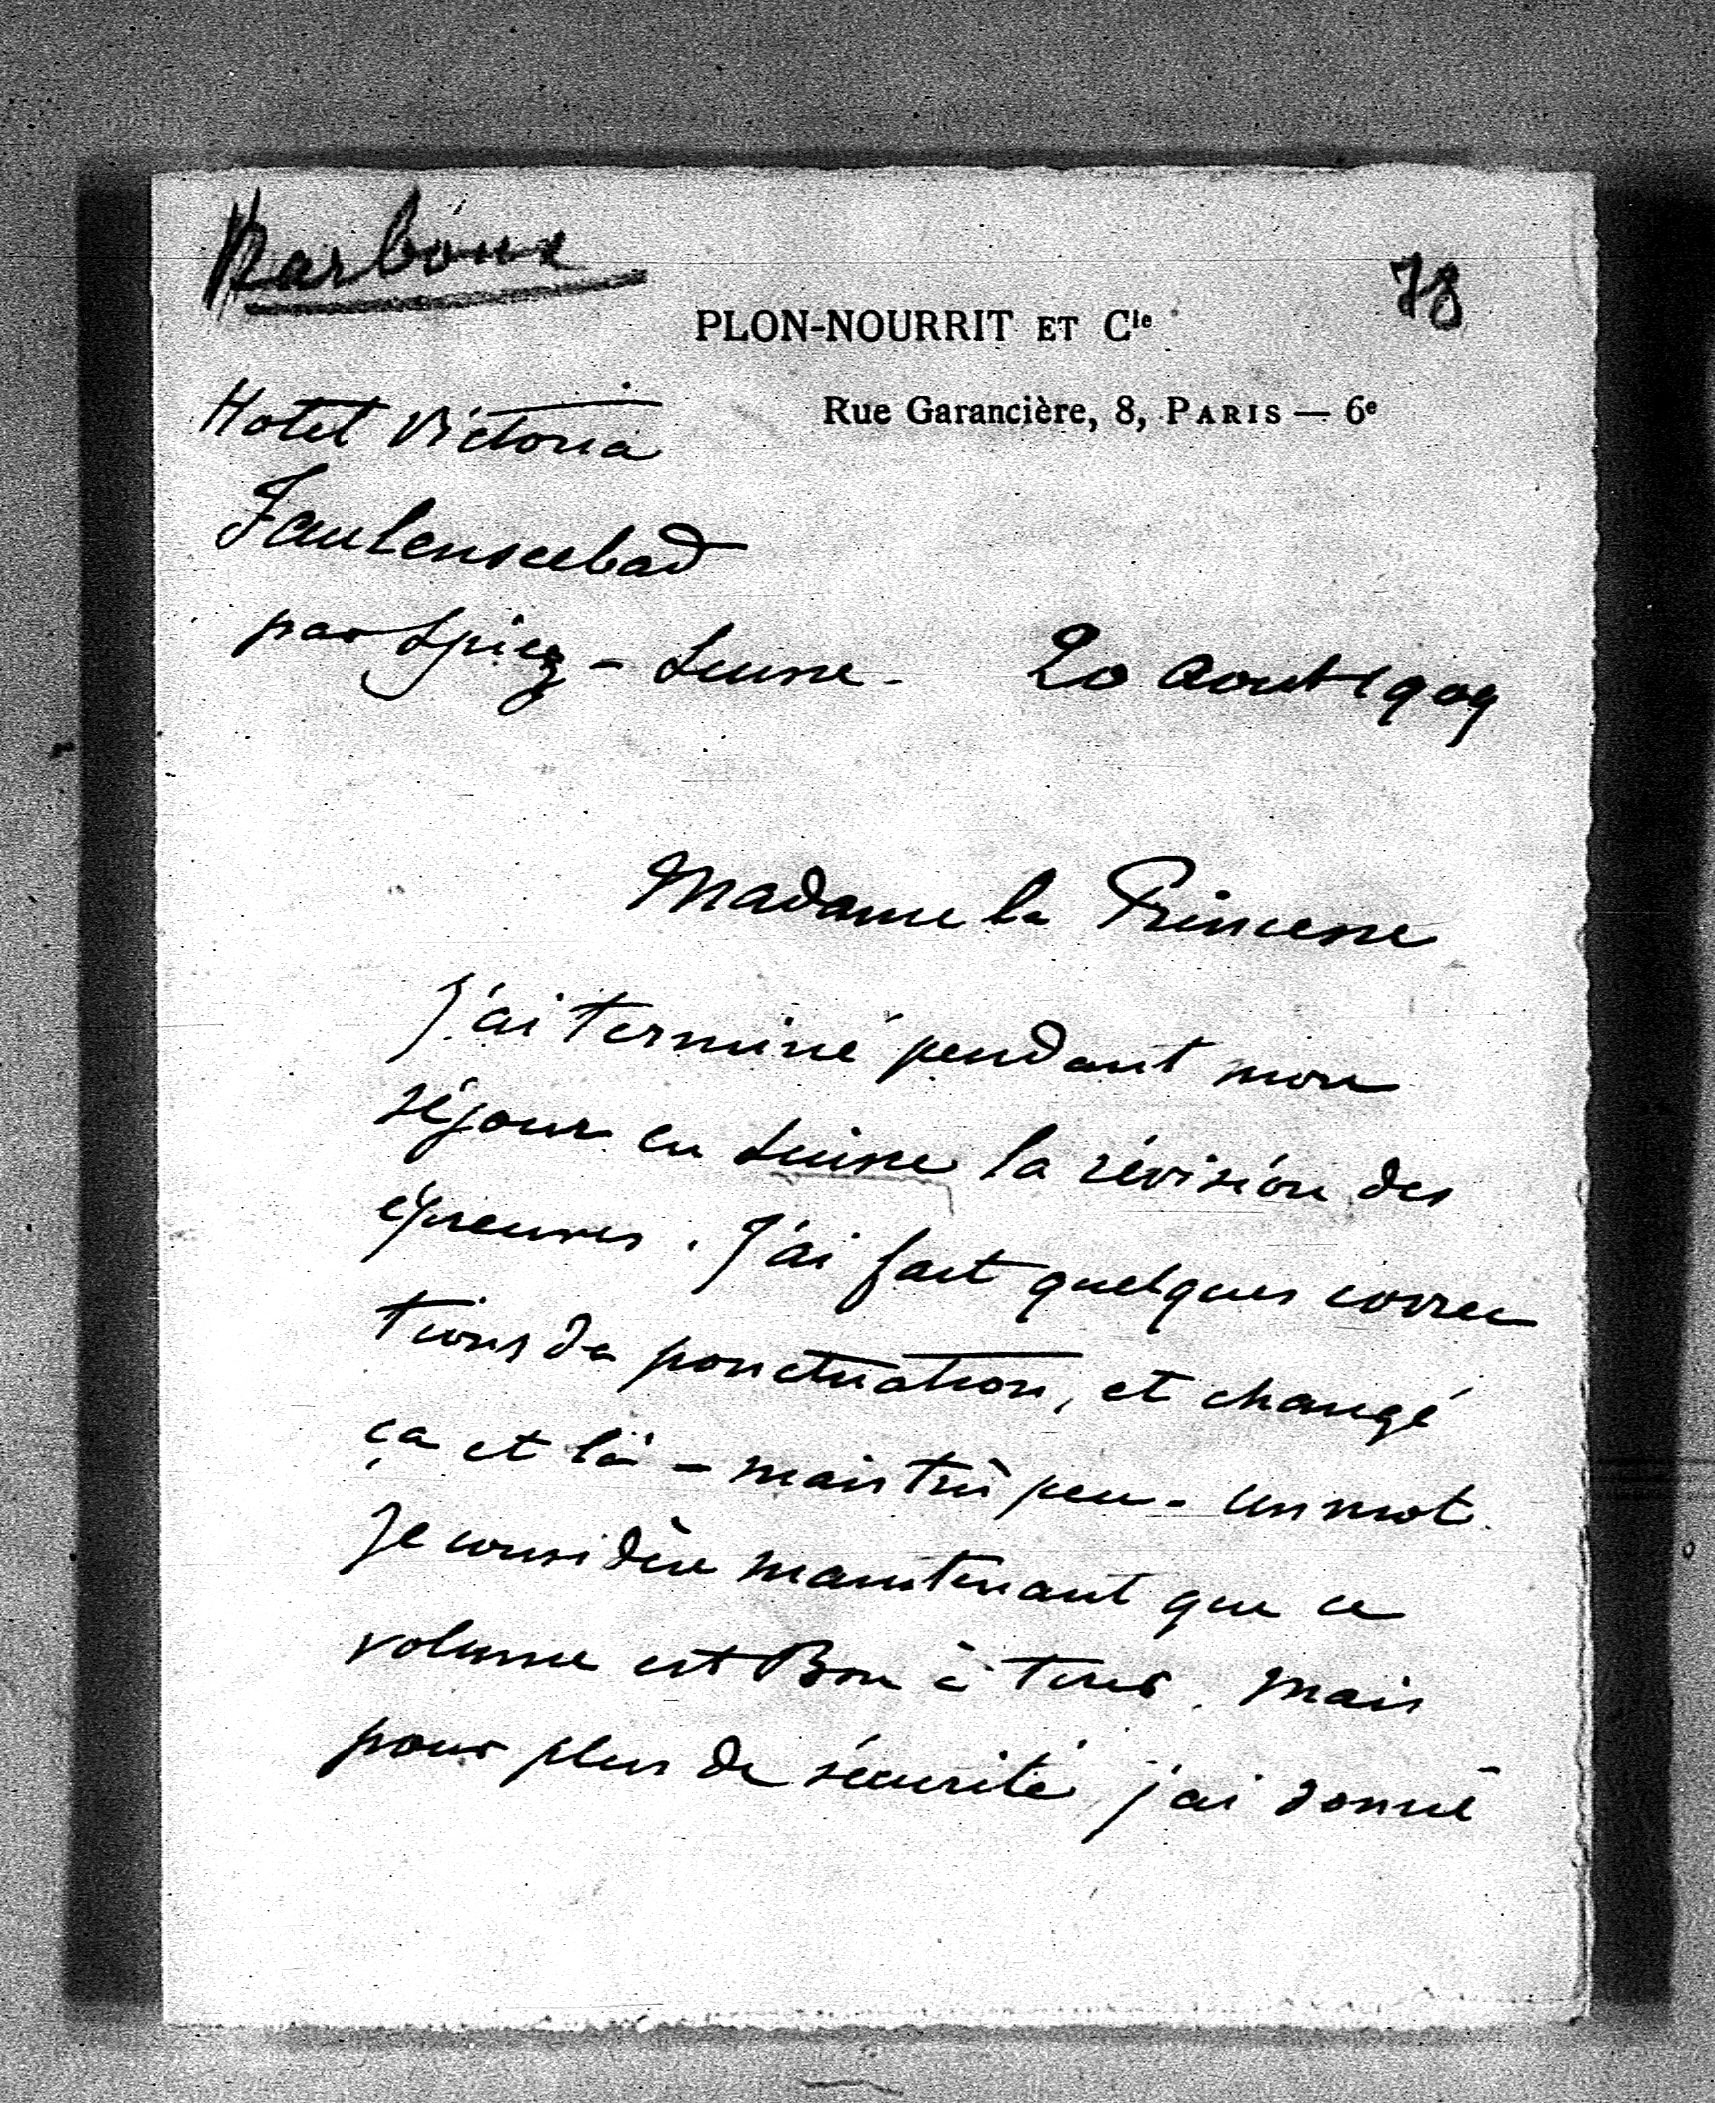 Barboux
78
PLON-NOURRIT ET Cie
Rue Garancière, 8, PARIS — 6e
Hotel Victoria
Faulenseebad
par Spiez - Suisse - 20 Aout 1909
Madame la Princesse
J'ai terminé pendant mon
séjour en Suisse la révision des
épreuves. J'ai fait quelques correc
tions de ponctuation, et changé
ça et là - mais très peu - un mot.
Je considère maintenant que ce
volume est Bon à tirer. Mais
pour plus de sécurité j'ai donné